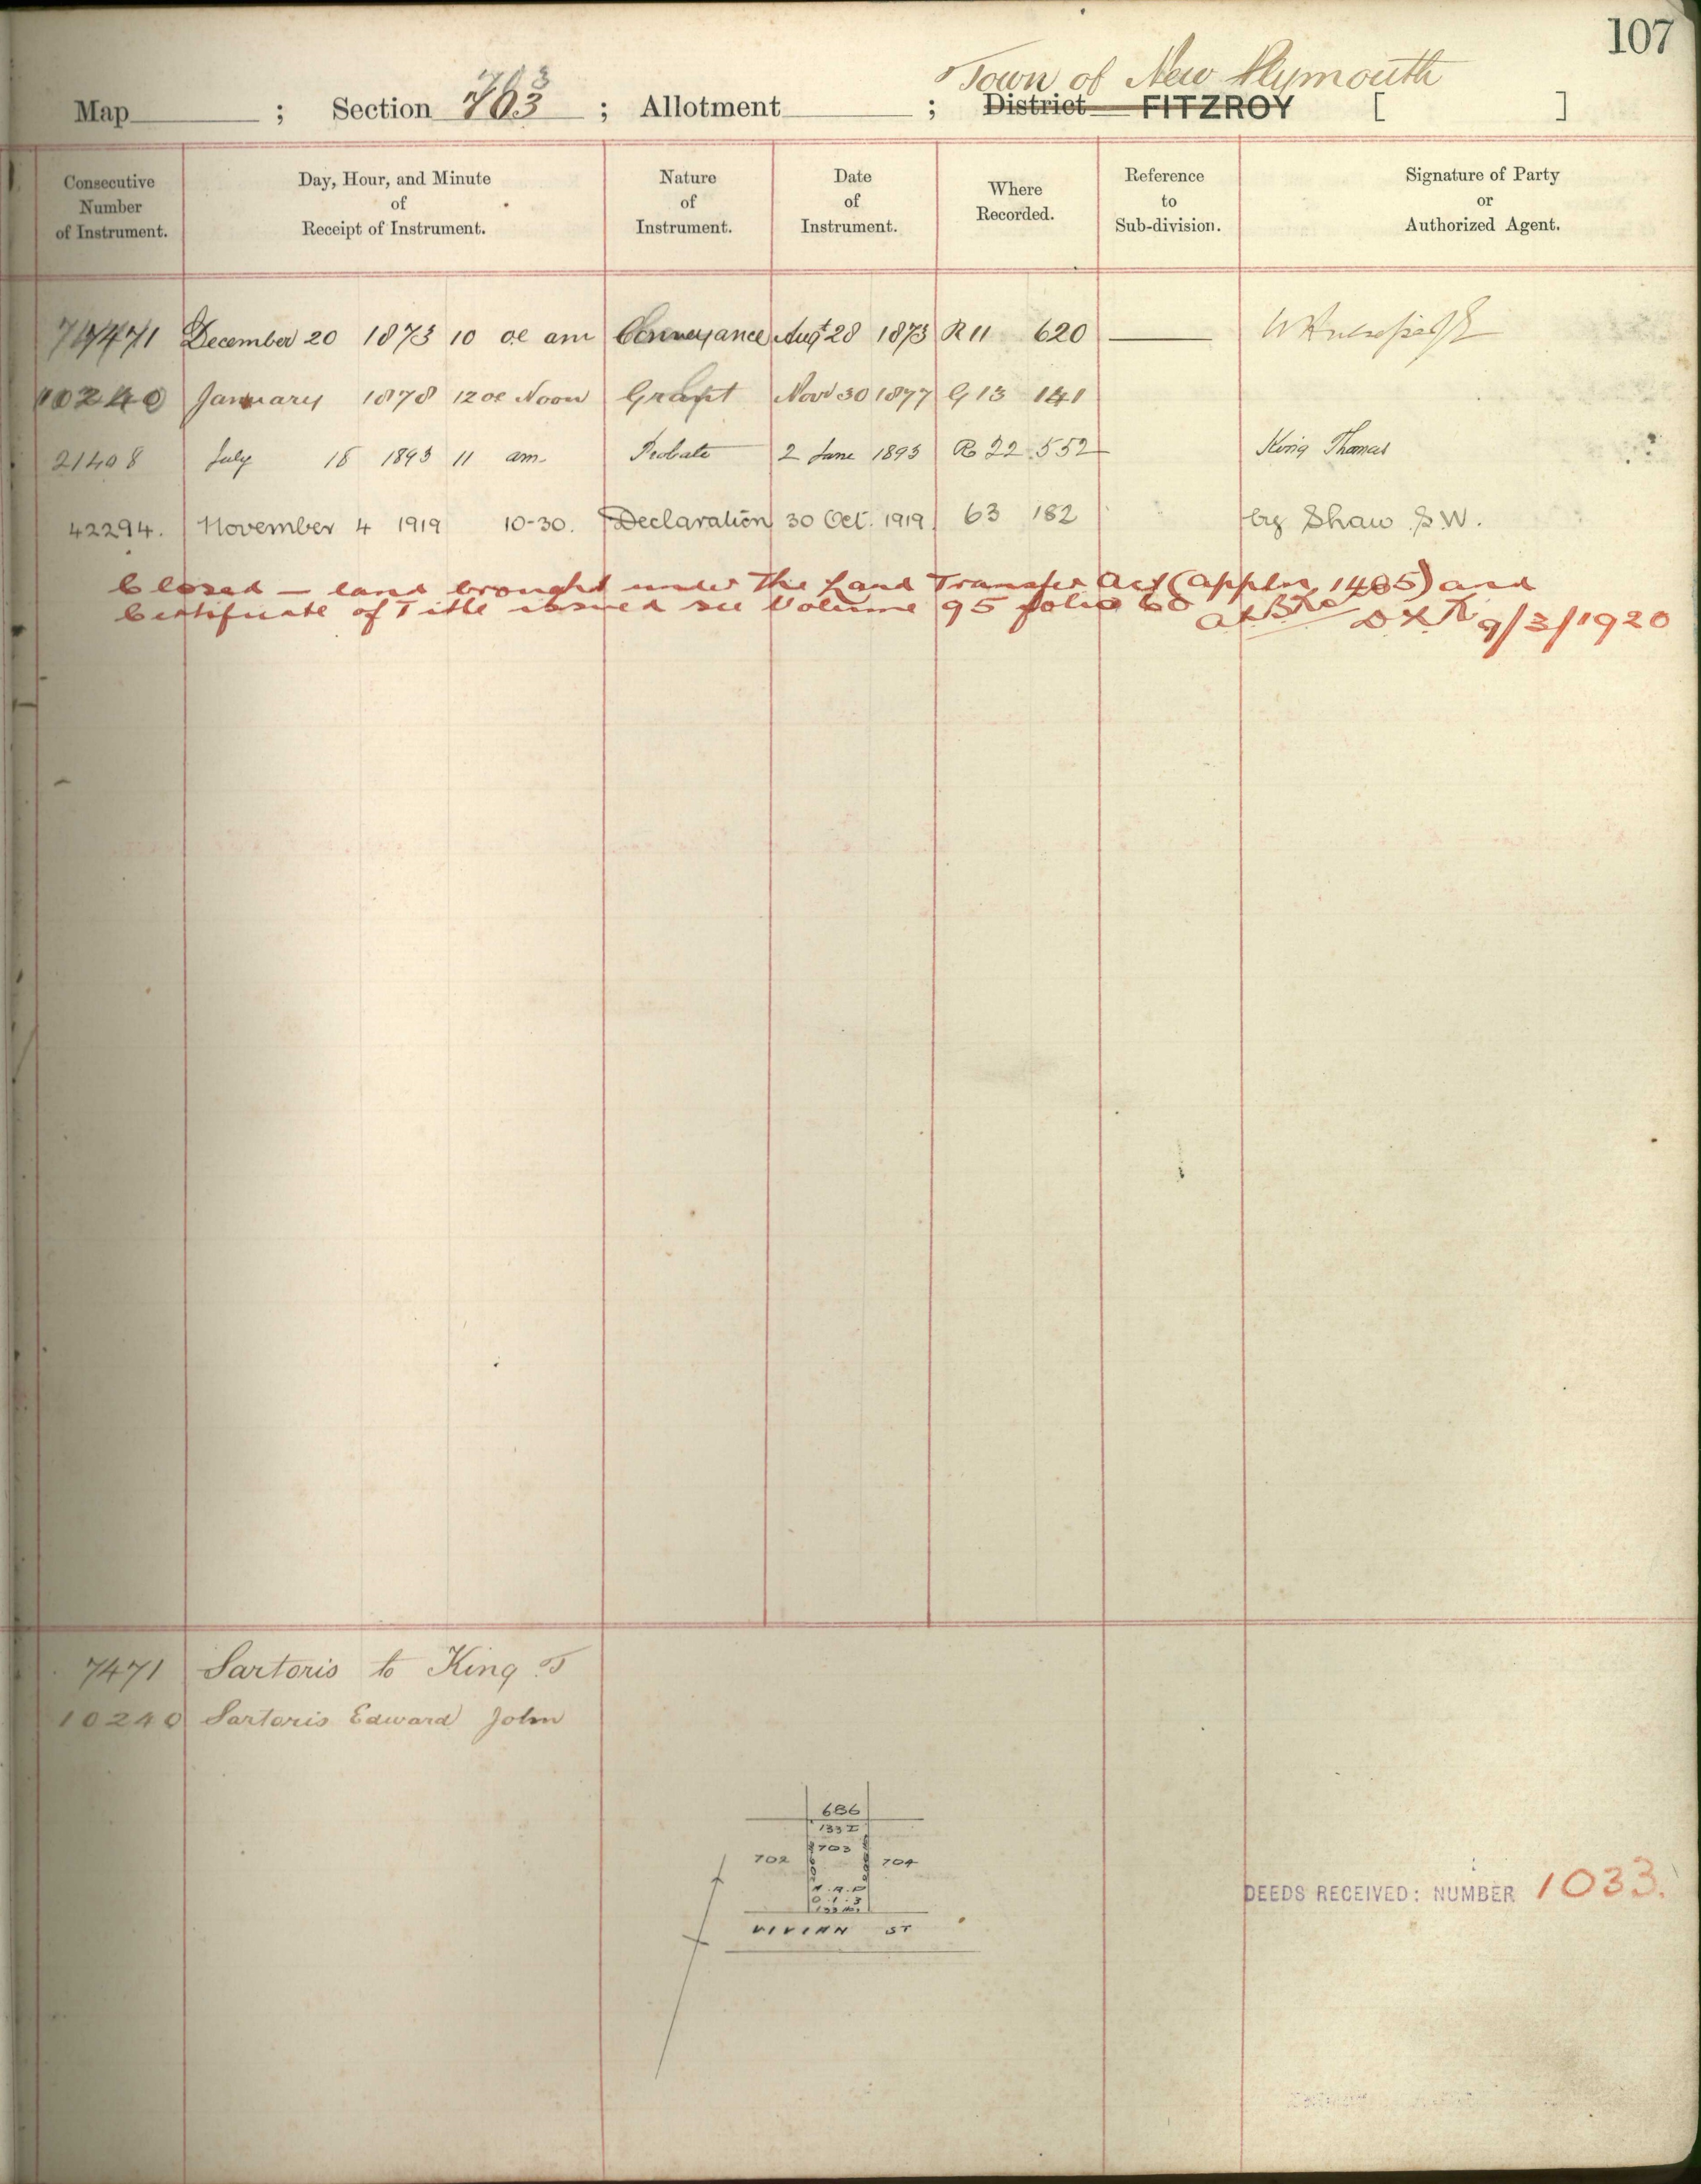 107
Town of New Plymouth
Map ; Section 703 ; Allotment ; District FITZROY [ ]
Consecutive Number of Instrument. Day, Hour, and Minute of Receipt of Instrument. Nature of Instrument. Date of Instrument. Where Recorded. Reference to Sub-division. Signature of Party or Authorized Agent.
7471 December 20 1873 10 oc am Conveyance Augt 28 1873 R 11 620
10240 January 1878 12 oc Noon Grant Novr 30 1877 G 13 141
21408 July 18 1893 11 am. Probate 2 June 1893 R 22 552 King Thomas
42294. November 4 1919 10-30. Declaration 30 Oct. 1919 63 182 by Shaw S.W.
Closed — land brought under the Land Transfer Act (Appln 1485) and
Certificate of Title issued see Volume 95 folio 60 9/3/1920
7471 Sartoris to King T
10240 Sartoris Edward John
686
1332
703
702 704
0.1.3
VIVIAN ST
DEEDS RECEIVED: NUMBER 1033.